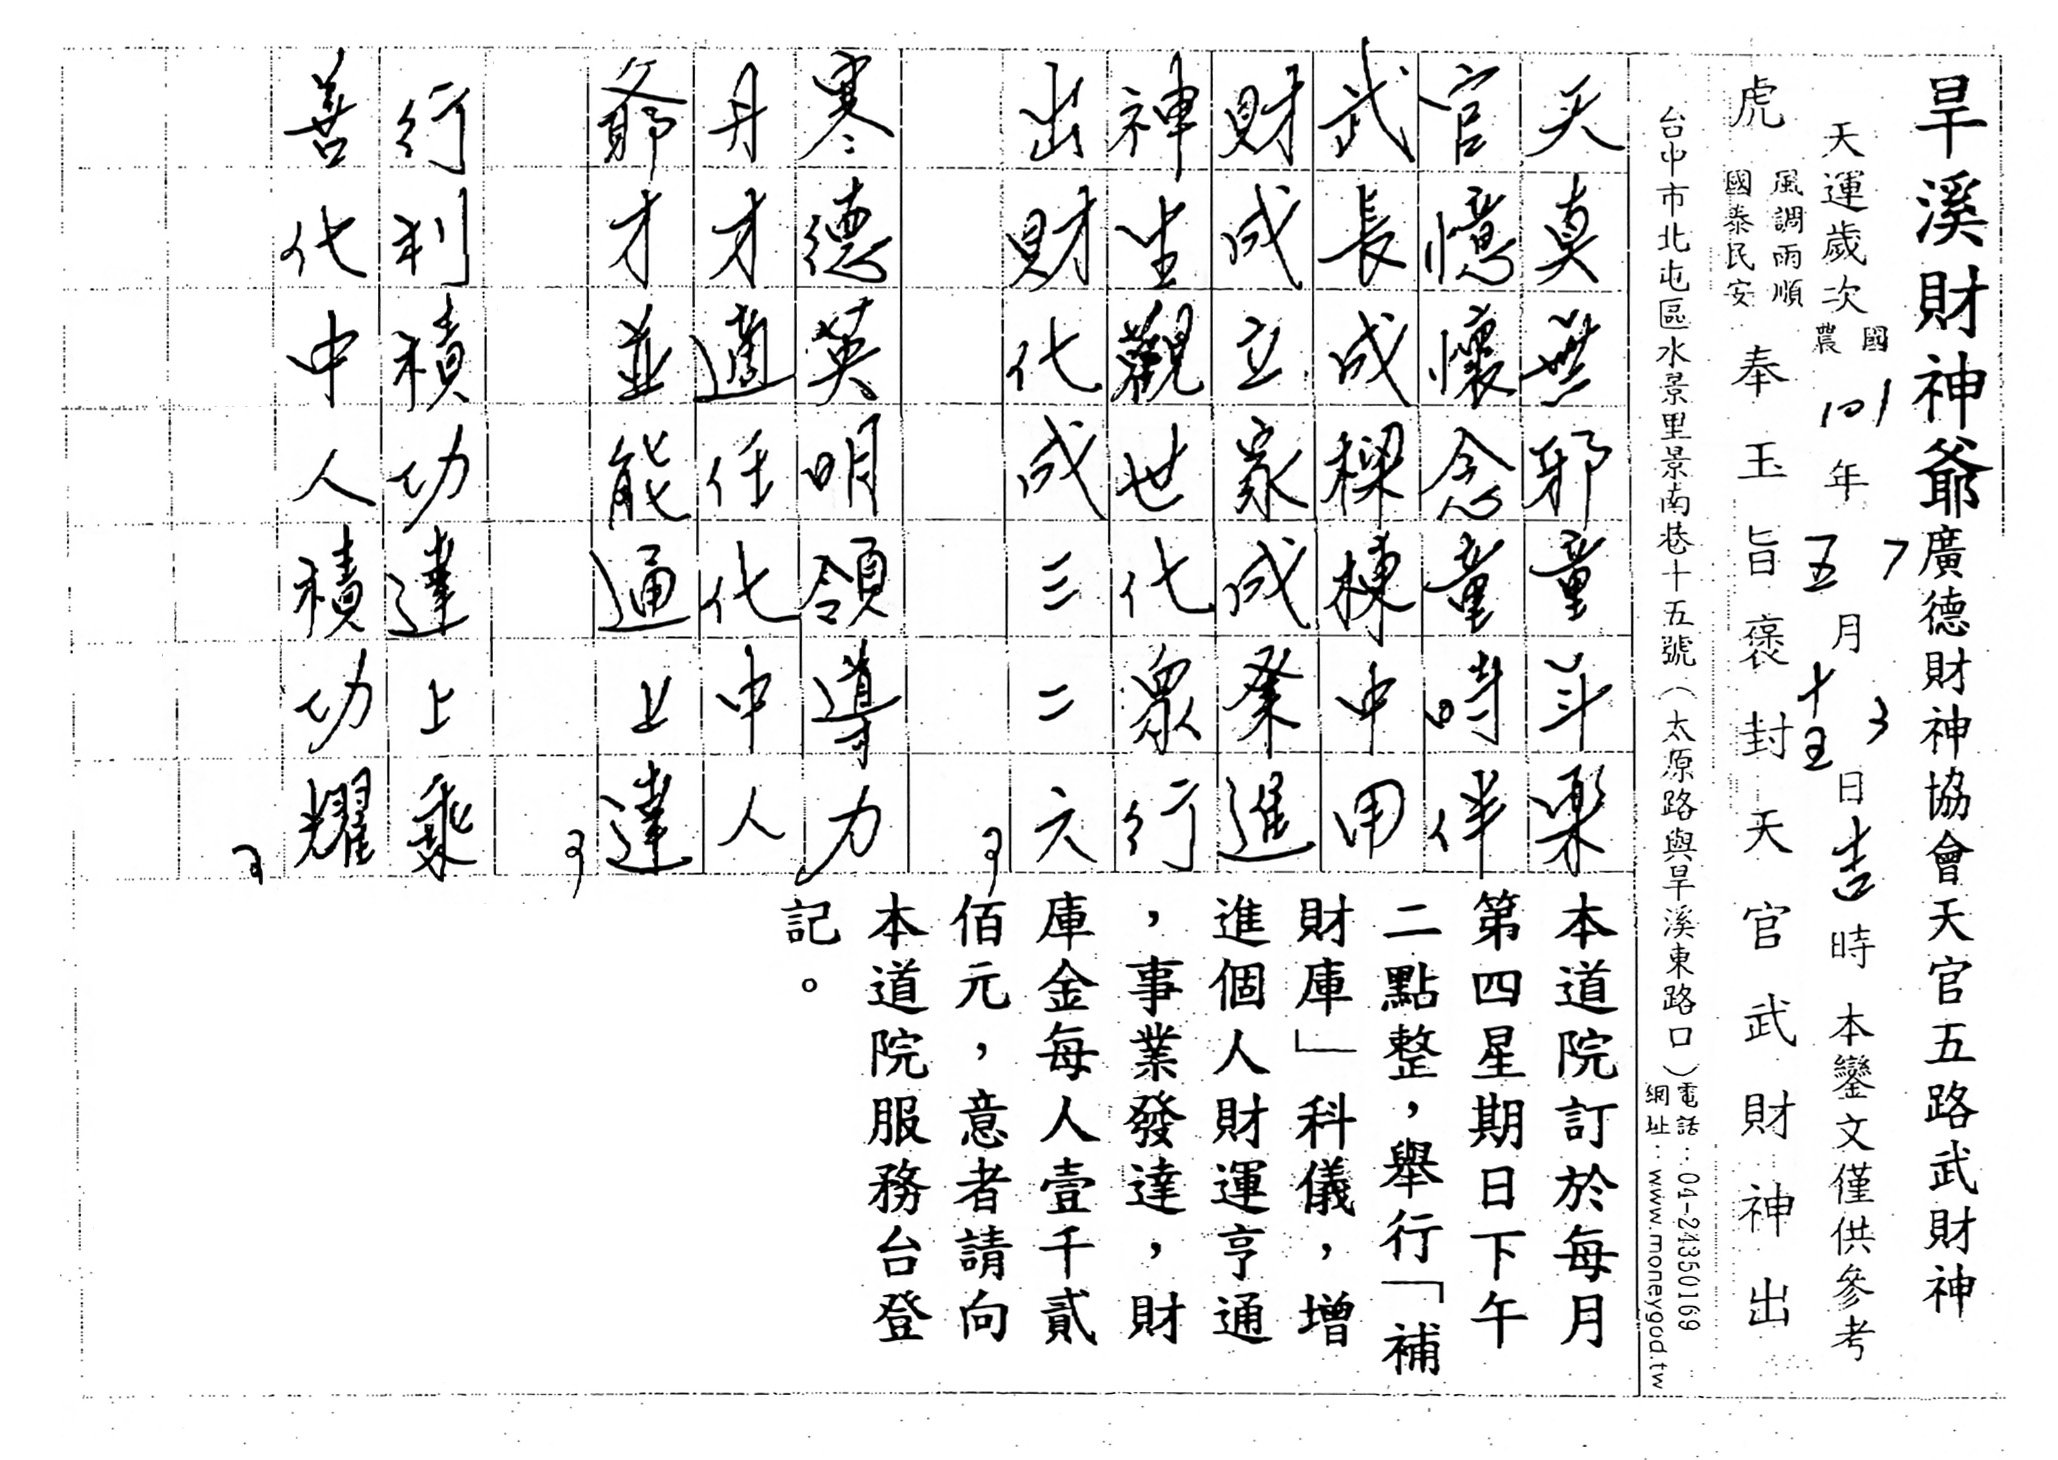 旱溪財神爺廣德財神協會天官五路武財神
天運歲次國農101年7五月3十五日吉時 本鑾文僅供參考
虎 風調雨順 國泰民安 奉玉旨褒封天官武財神出
台中市北屯區水景里景南巷十五號（太原路與旱溪東路口）電話：04-24350169
網址：www.moneygod.tw
天真無邪童年樂
官憶懷念童時伴
武長成樑棟中用
財成立家成癸進
神坐觀世化眾行
出財代成三二六
寒德英明領導力
丹才適任化中人
爺才並能通上達
行利積功達上乘
善代中人積功耀
本道院訂於每月
第四星期日下午
二點整，舉行「補
財庫」科儀，增
進個人財運亨通
，事業發達，財
庫金每人壹千貳
佰元，意者請向
本道院服務台登
記。